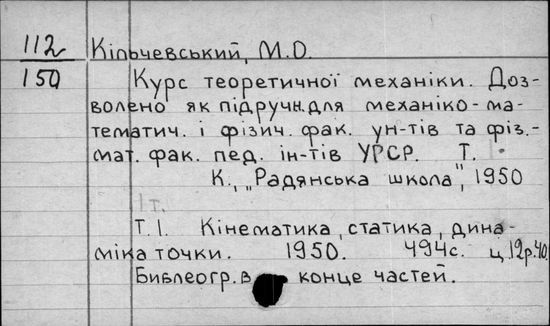 112
150
Кільчевський, М.О.
Курс теоретичної механіки. Доз-
волено як підручн. для механіко-ма-
тематич. і фізич. фак. ун-тів та фіз.-
мат. фак. пед. ін-тів УРСР. Т.
К., "Радянська школа", 1950
1т.
Т.I. Кінематика, статика, дина-
міка точки. 1950. 494с. ц. 12р.40.
Библеогр. в конце частей.